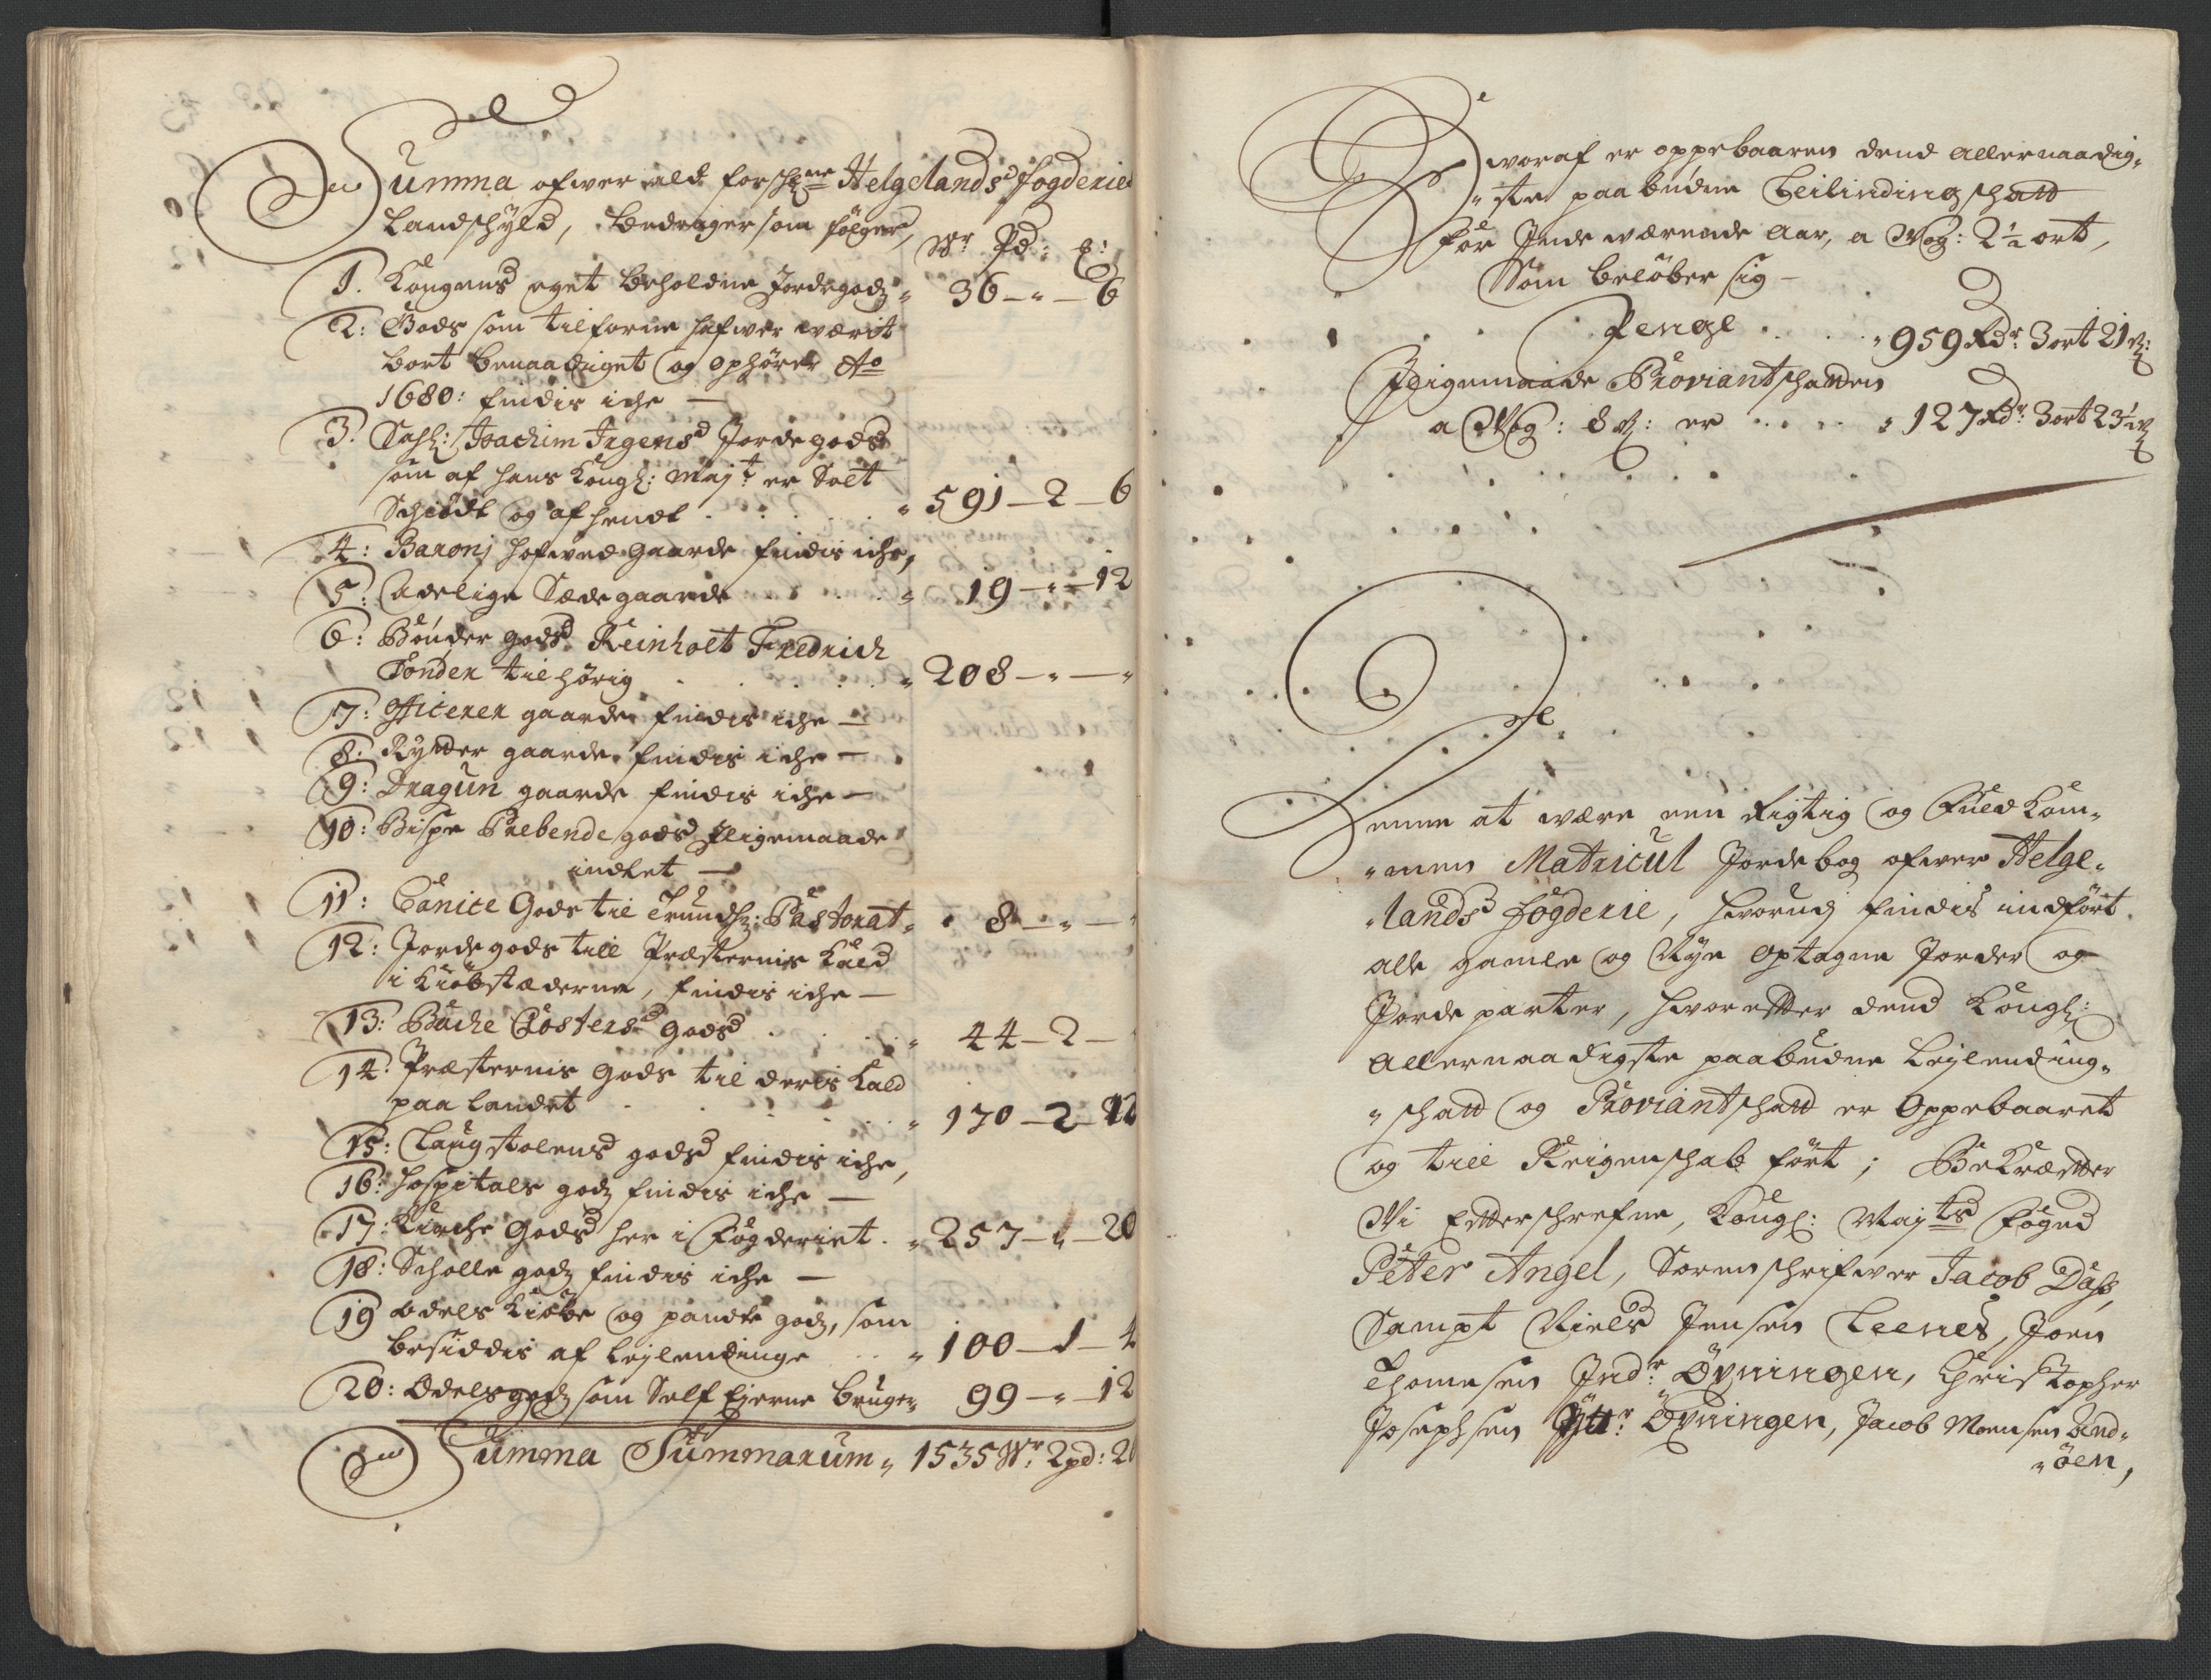 Summa ofwer ald forschne Helgelands Fogderie
Landschyld, bedrager som følger,
Wr Pd: ℔:
1. Kongens eget beholdne Jordegodz „ 36 – „ – 6
2: Gods som tilforne hafwer wærit
bort benaadiget og ophører Ao
1680: findis iche —
3. Sahl: Joachim Irgens Jordegods
som af hans Kongl: Majt er Solt
Schiødt og afhendt . . . „ 591 – 2 – 6
4: Baronj hofwed Gaarde findis iche,
5: Adelige Sædegaarde . . . „ 19 – „ – 12
6: Bønder gods Reinholt Fredrich
Tønder tilhørig . . . „ 208 – „ – „
7: Officerer gaarde findis iche —
8: Rytter gaarde findis iche —
9: Dragun gaarde findis iche —
10: Bispe Prebende gods Iligemaade
indtet —
11: Canice Gods til Trundhz: Pastorat „ 8 – „ –
12: Jordegods till Præsternis Kald
i Kiøbstæderne, findis iche —
13: Bache Closters gods . . . „ 44 – 2 –
14: Præsternis Gods til deris Kald
paa Landet . . . „ 170 – 2 – 12
15: Laugstolens gods findis iche,
16: Hospitals godz findis iche —
17: Kirche Gods her i Fogderiet . „ 257 – „ – 20
18: Scholle godz findis iche —
19 Odels Kiøbe og pandte godz, som
besiddis af Lejlendinge . . „ 100 – 1 – 4
20: Odels godz som Self Ejerne bruger „ 99 – „ – 12
Summa Summarum „ 1535 Wr: 2 pd: 20
Hworaf er oppebaaren dend allernaadig„
„ste paabudne Leilindingschatt
for Inde wærende Aar, a Wog: 2½ ort,
Som beløber sig —
Penge . . . . „ 959 Rdr: 3 ort 21 ß:
Iligemaade Proviantschatten
a Wog: 8 ß: er . . . . „ 127 Rdr: 3 ort 23½ ß
Denne at wære een Rigtig og Fuldkom„
„men Matricul Jordebog ofwer Helge„
„lands Fogderie, hworudj findis indført
alle gamle og Nye optagne Jorder og
Jordeparter, hworefter dend Kongl:
allernaadigste paabudne Lejlending„
„schatt og Proviantschatt er Oppebaaret
og till Reigenschab ført; Bekræfter
Wi Efterschrefne, Kongl: Majts Foged
Peter Angel, Sorenschrifwer Jacob Dass,
Sampt Niels Jensen Leenes, Joen
Thomesen Indr: Øyningen, Christopher
Josephsen Yttr: Øyningen, Jacob Monsen And„
„øen,